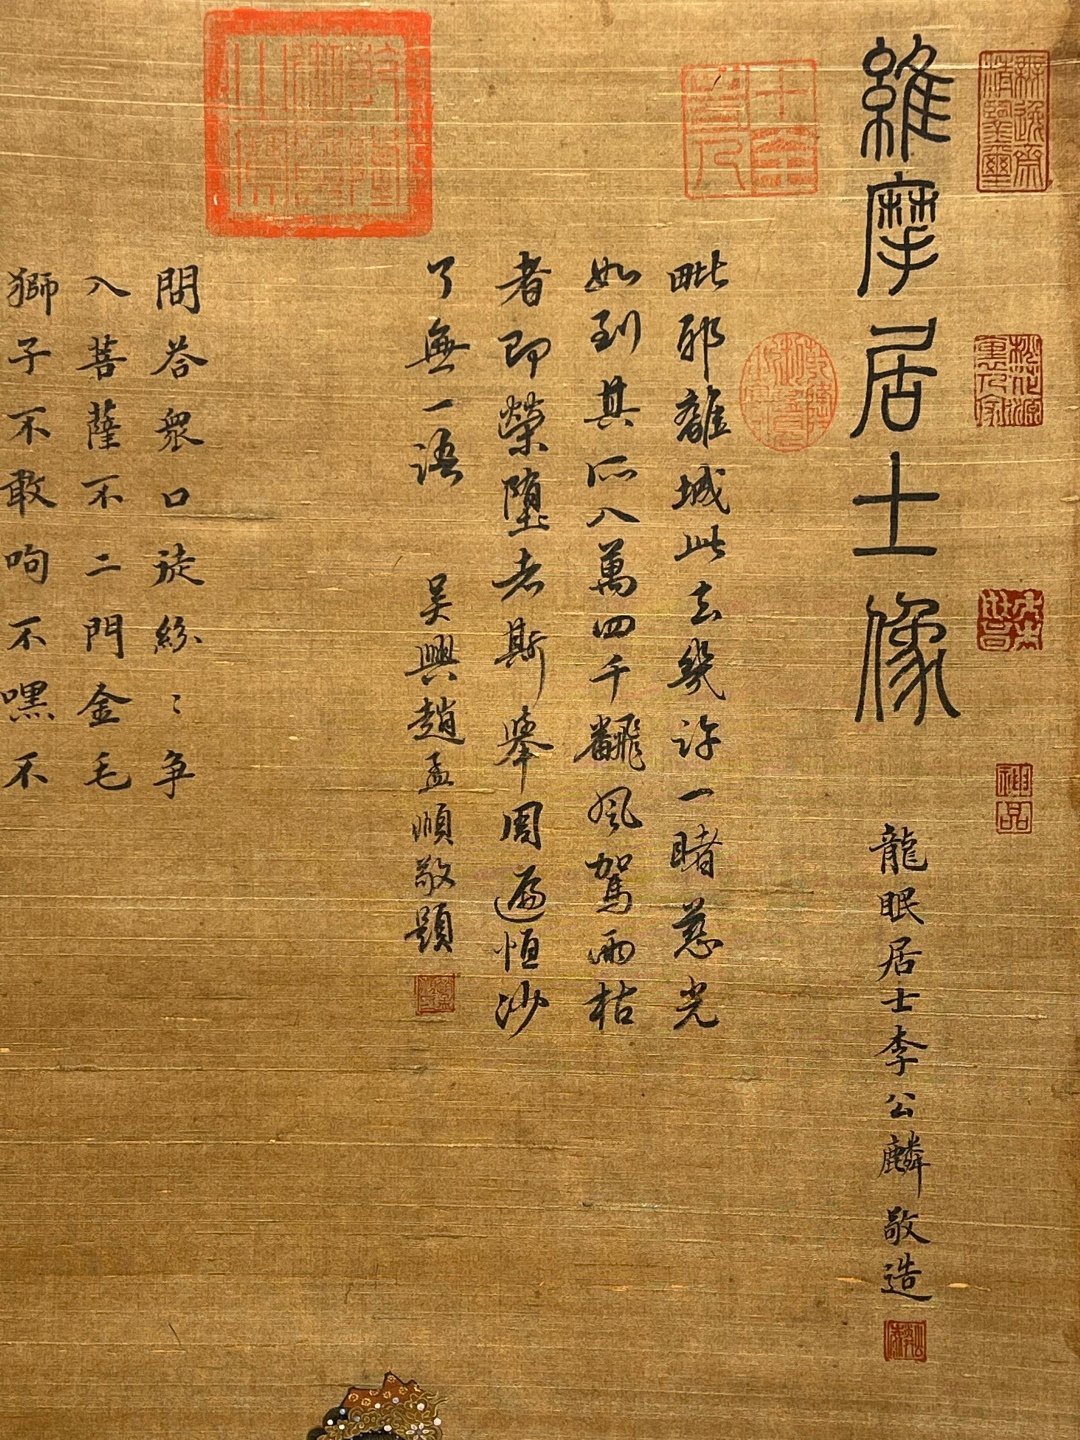 維摩居士像
龍眠居士李公麟敬造
毗耶離城此去幾許一睹慈光
如到其所八萬四千飜風駕雨枯
者即榮墮者斯舉周遍恒沙
了無一語 吴興趙孟順敬題
問答衆口徒紛〻争
入菩薩不二門金毛
獅子不敢呴不嘿不
神品